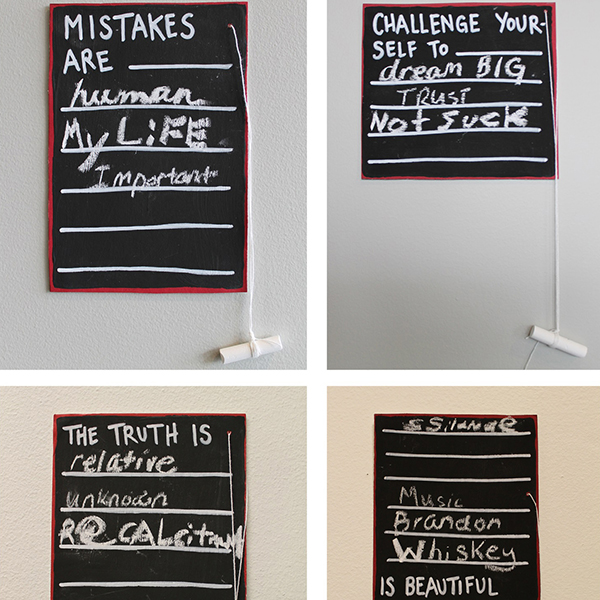 MISTAKES
ARE
human
My LiFE
Important
CHALLENGE YOUR-
SELF TO
dream BIG
TRUST
Not Suck
THE TRUTH IS
relative
unknown
Music
Brandon
Whiskey
IS BEAUTIFUL